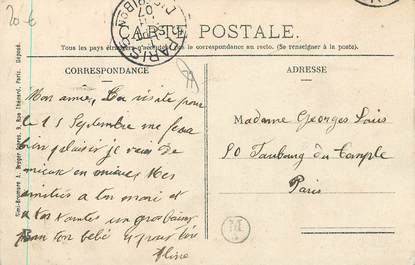 20-€
PARIS
07
DISTRIBON
CARTE POSTALE.
Tous les pays étrangers n'acceptent pas la correspondance au recto. (Se renseigner à la poste).
CORRESPONDANCE
ADRESSE
Simi-Bromure A. Breger frères, 9, Rue Thénard, Paris. Déposé.
Mon amie, La visite pour
le 15 Septembre me fera
bien plaisir je vais de
mieux en mieux. Mes
amitiés a ton mari et
a ton un gros baiser
pour ton bébé et pour toi
Aline
Madame Georges Louis
90 Faubourg du Temple
Paris
M